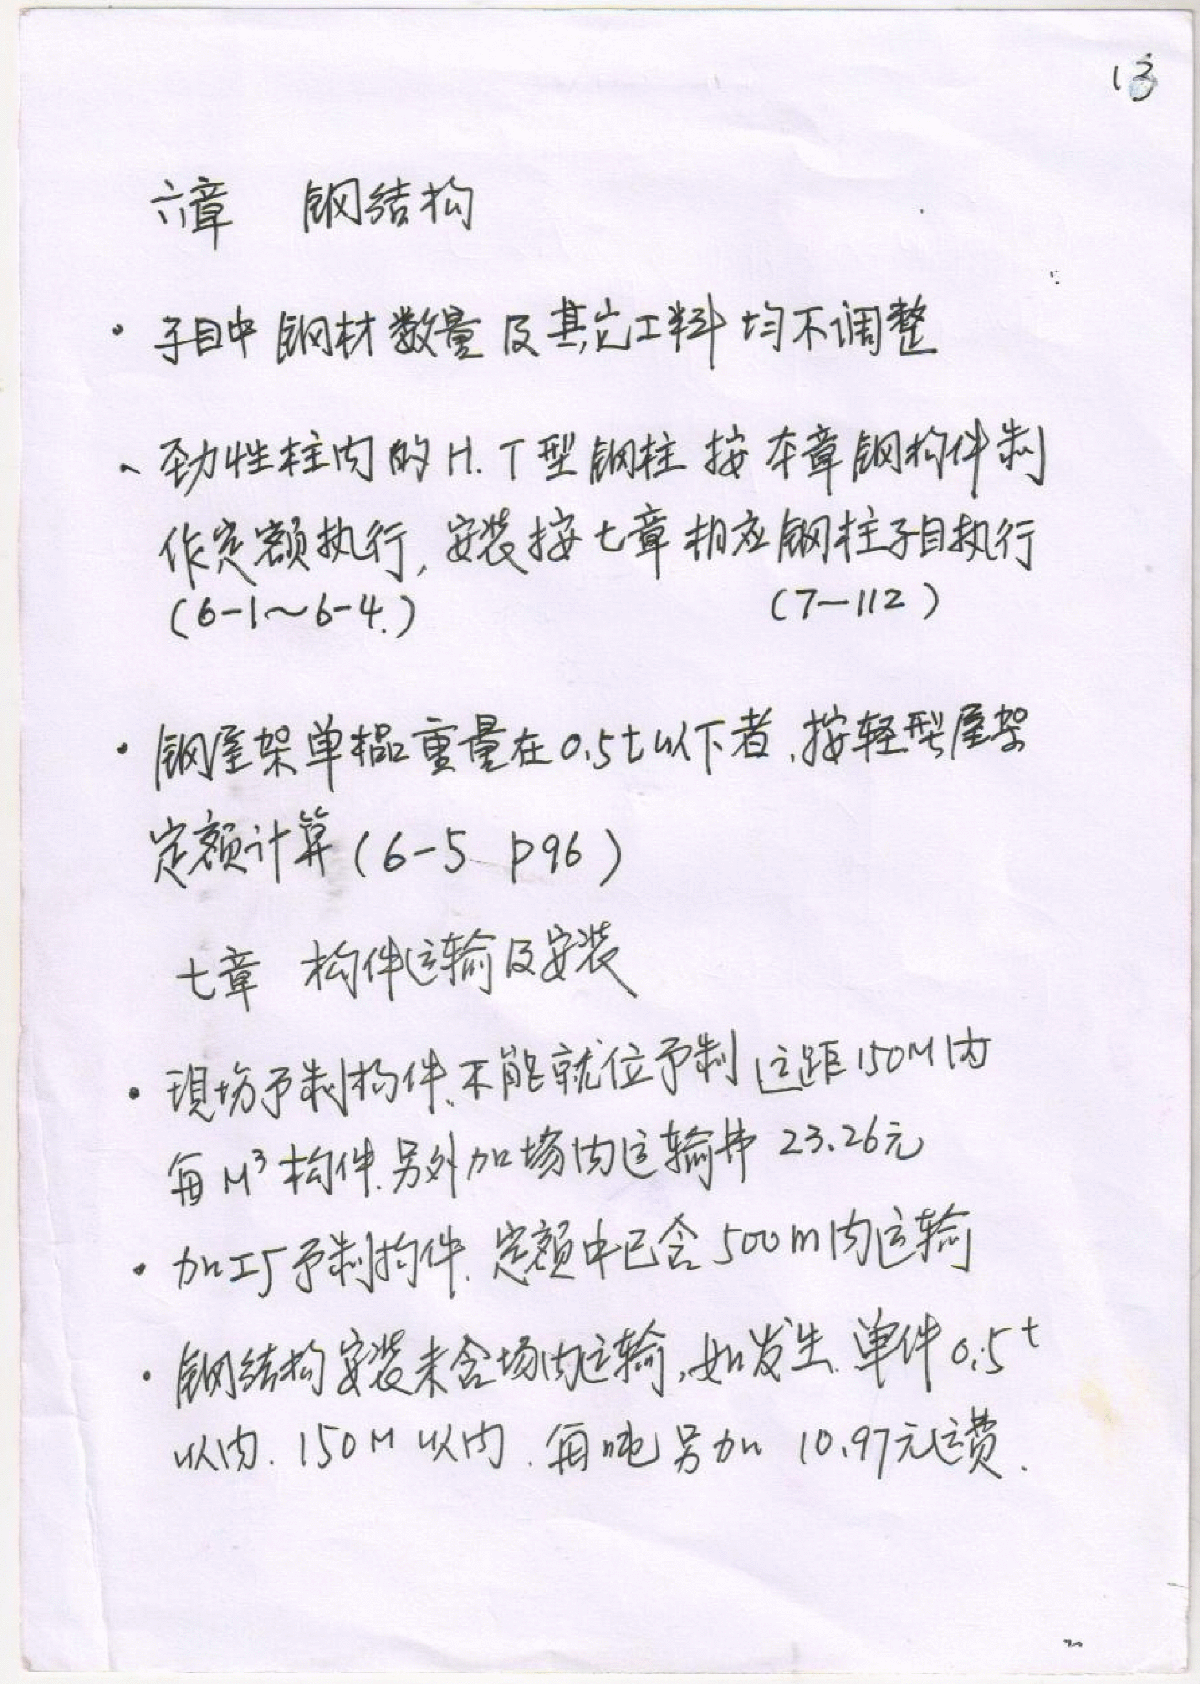 13
六章 钢结构
· 子目中钢材数量及其它工料均不调整
、劲性柱内的H.T型钢柱按本章钢构件制
作定额执行,安装按七章相应钢柱子目执行
(6-1~6-4.) (7-112)
· 钢屋架单榀重量在0.5t以下者,按轻型屋架
定额计算(6-5 P96)
七章 构件运输及安装
· 现场予制构件、不能就位予制 运距150M内
每M³构件.另外加场内运输费 23.26元
· 加工厂予制构件.定额中已含500m内运输
· 钢结构安装未含场内运输,如发生.单件0.5t
以内.150M以内.每吨另加 10.97元运费.